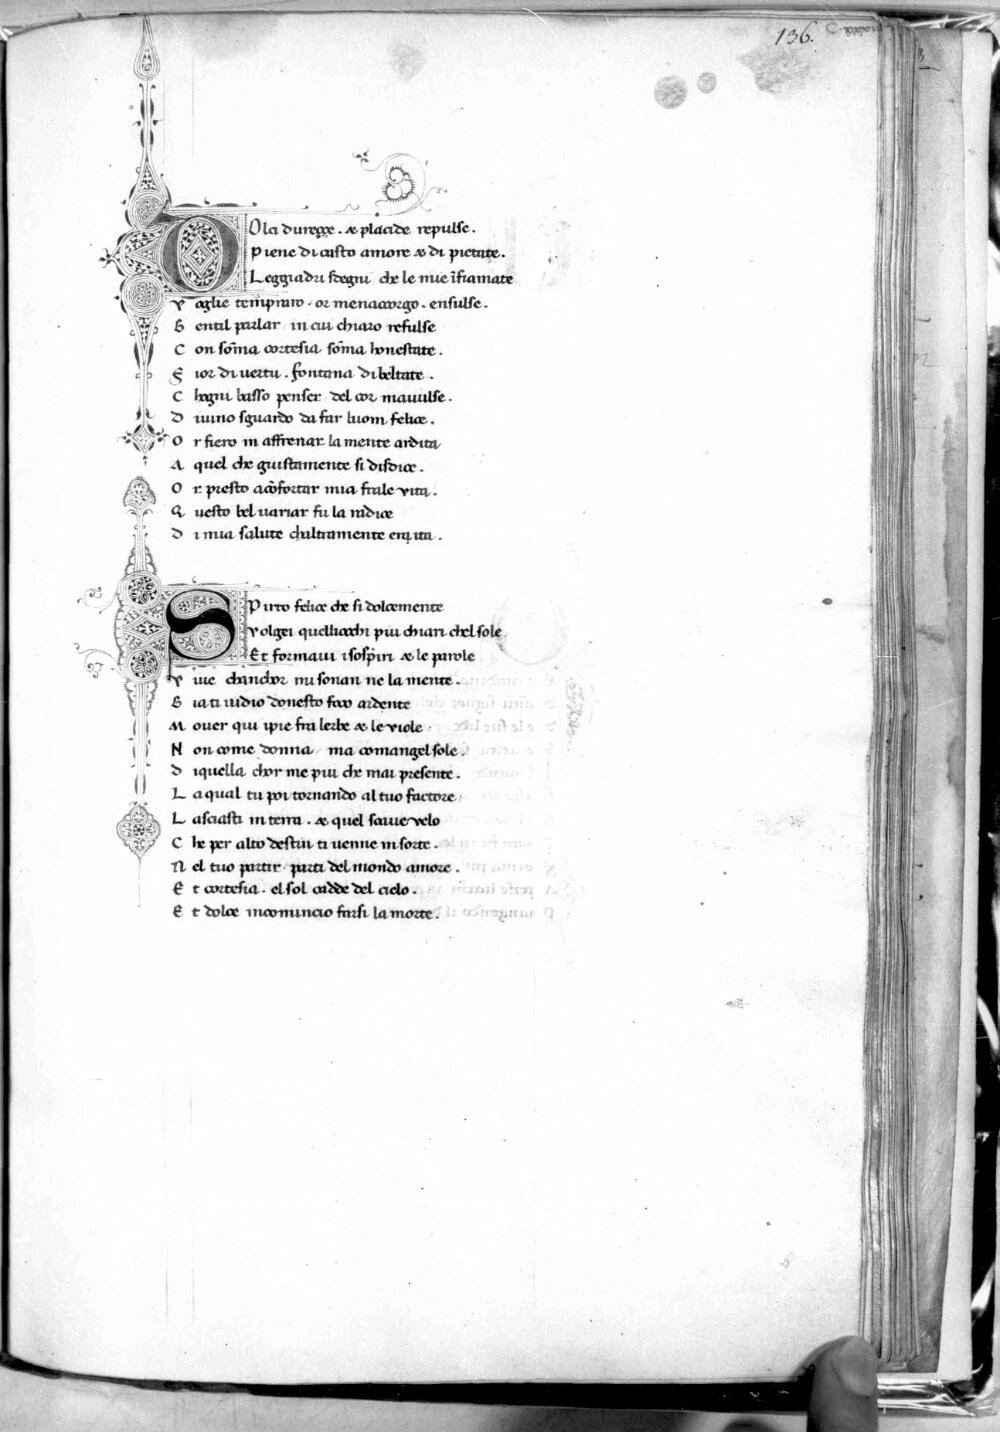 136.
Olci dureççe . æ placide repulse .
Piene di casto amore æ di pietate .
Leggiadri sdegni che le mie ĩfiamate
Voglie tempraro . or menaccorgo . ensulse .
Gentil parlar in cui chiaro refulse
Con soma cortesia soma honestate .
Fior di vertu . fontana di beltate .
Chogni basso penser del cor mavulse .
Divino sguardo da far luom felice .
Or fiero in affrenar la mente ardita
A quel che giustamente si disdice .
Or presto a cõfortar mia frale vita .
Questo bel variar fu la radice
Di mia salute chaltramente era ita .
SPirto felice che si dolcemente
Volgei quelliocchi piu chiari chel sole
Et formavi i sospiri æ le parole
Vive chanchor mi sonan ne la mente .
Gia ti vidio donesto foco ardente
Mover qui ipie fra lerbe æ le viole
Non come donna ma comangel sole .
Di quella chor me piu che mai presente .
La qual tu poi tornando al tuo factore
Lasciasti in terra . æ quel soave velo
Che per alto destin ti venne in sorte .
Nel tuo partir parti del mondo amore .
Et cortesia . el sol cadde del cielo .
Et dolce incomincio farsi la morte .